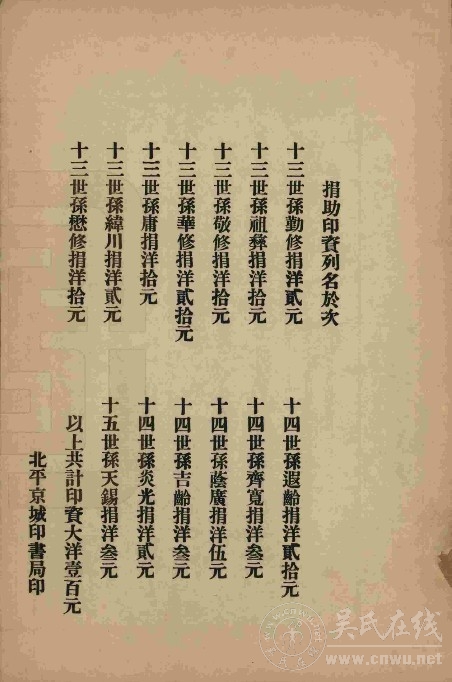 捐助印資列名於次
十三世孫勤修捐洋貳元
十三世孫祖彝捐洋拾元
十三世孫敬修捐洋拾元
十三世孫華修捐洋貳拾元
十三世孫庸捐洋拾元
十三世孫緯川捐洋貳元
十三世孫懋修捐洋拾元
十四世孫遐齡捐洋貳拾元
十四世孫齊寬捐洋叁元
十四世孫蔭廣捐洋伍元
十四世孫吉齡捐洋叁元
十四世孫炎光捐洋貳元
十五世孫天錫捐洋叁元
以上共計印資大洋壹百元
北平京城印書局印
吴氏在线
www.cnwu.net